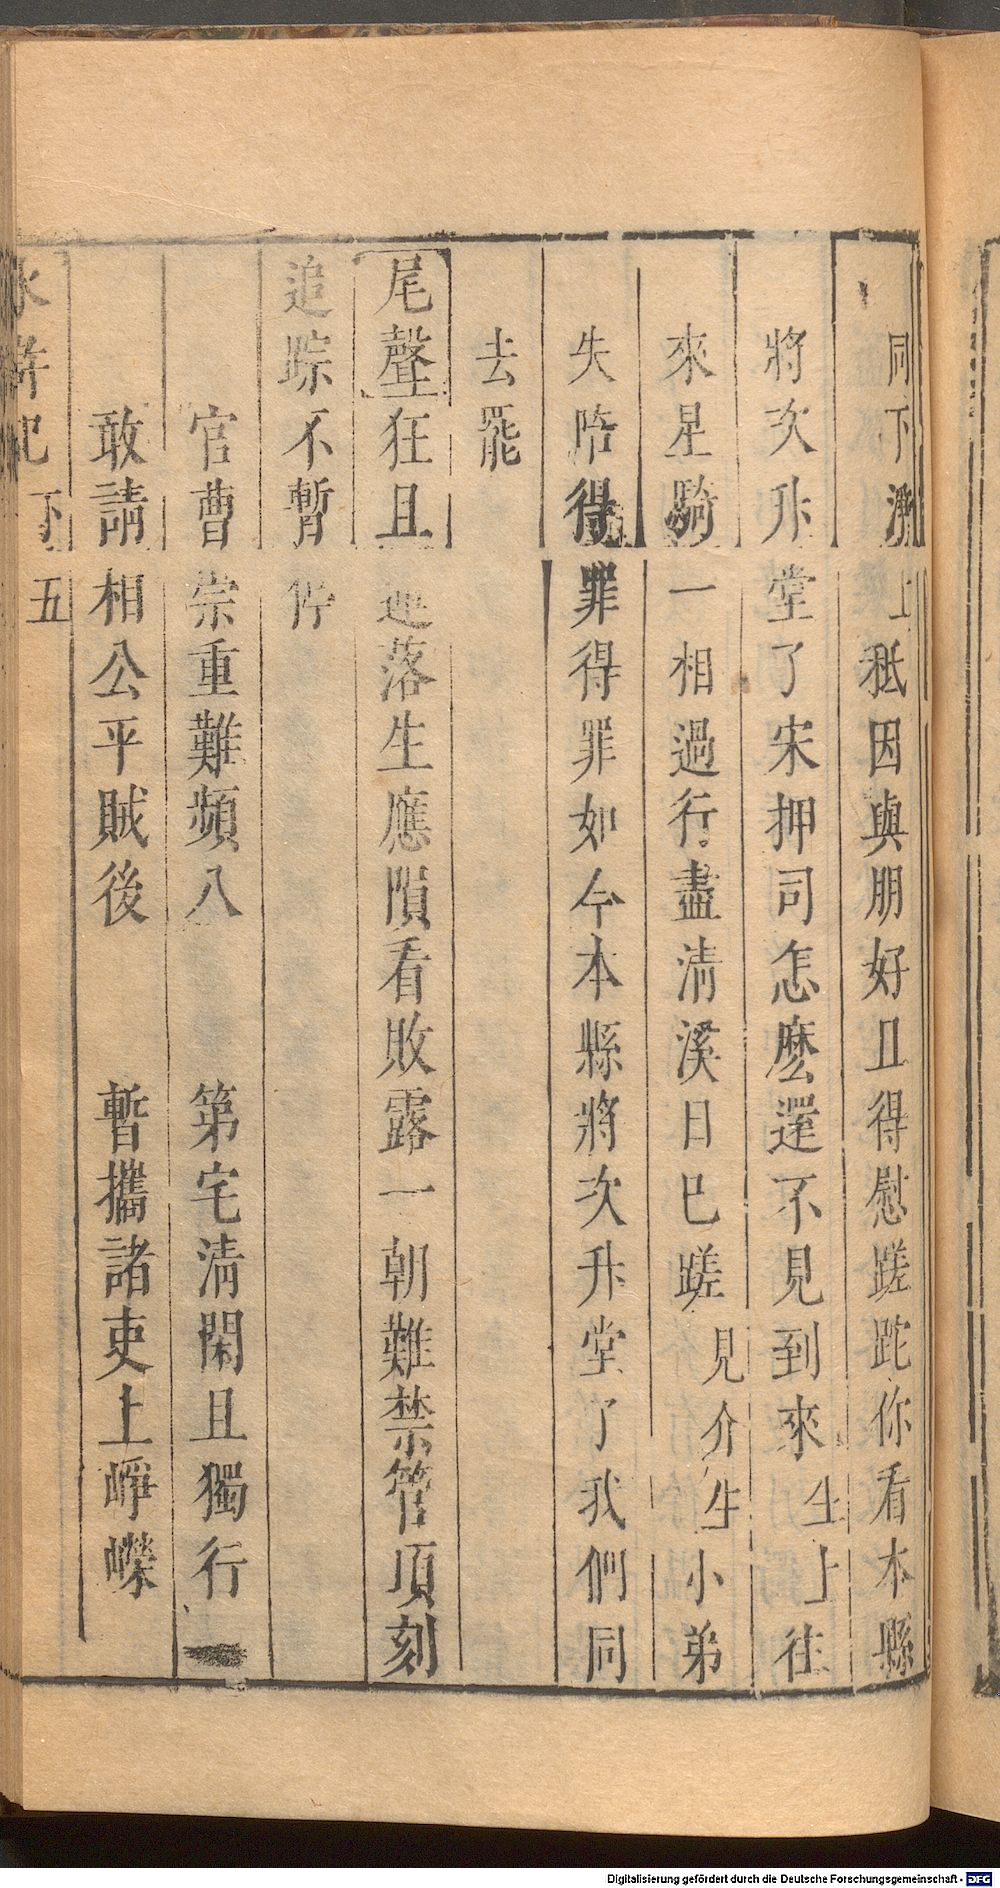 同下濟上秪因與朋好且得慰蹉跎你看本縣
將次升堂了宋押司怎麽還不見到來生上往
來星騎一相過行盡清溪日已蹉見介生小弟
失陪得罪得罪如今本縣將次升堂了我們同
去罷
尾聲狂且運落生應隕看敗露一朝難禁管項刻
追踪不暫停
官曹崇重難頻八　第宅清閑且獨行
敢請相公平賊後　暫攜諸吏上崢嶸
水滸記 下 五
Digitalisierung gefördert durch die Deutsche Forschungsgemeinschaft - DFG